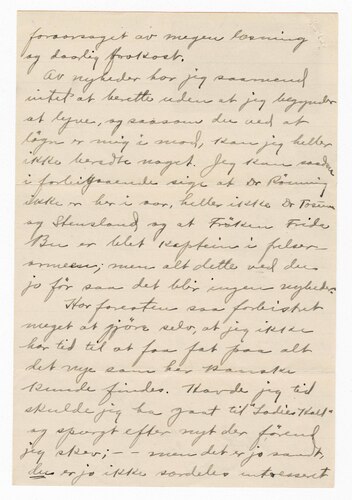 foraarsaget av megen læsning
og daarlig frokost.
Av nyheder har jeg saamend
intet at berette uden at jeg begynder
at lyve, og saasom du ved at
løgn er mig i mod, kan jeg heller
ikke berette noget. Jeg kan
i forbigaaende sige at Dr Rönning
ikke er her i aar, heller ikke Dr
og Stensland, og at Fröken Frida
Bu er blet kaptein i felser
armeen; men alt dette ved du
jo för saa det blir ingen nyheder.
Har foresten saa forbistret
meget at gjöre selv, at jeg ikke
har tid til at faa fat paa alt
det nye som her kanske
kunde findes. Havde jeg tid
skulde jeg ha gaat til "Ladies Hall"
og spurgt efter nyt der förend
jeg skev; - - men det er jo sandt,
du er jo ikke særdeles interessert